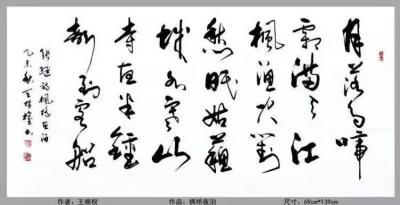 月落烏啼
霜满天江
楓渔火對
愁眠姑蘇
城外寒山
寺夜半鐘
声到客船
张继詩楓橋夜泊
乙未秋王顺权书
作者：王顺权 作品：枫桥夜泊 尺寸：69cm*139cm